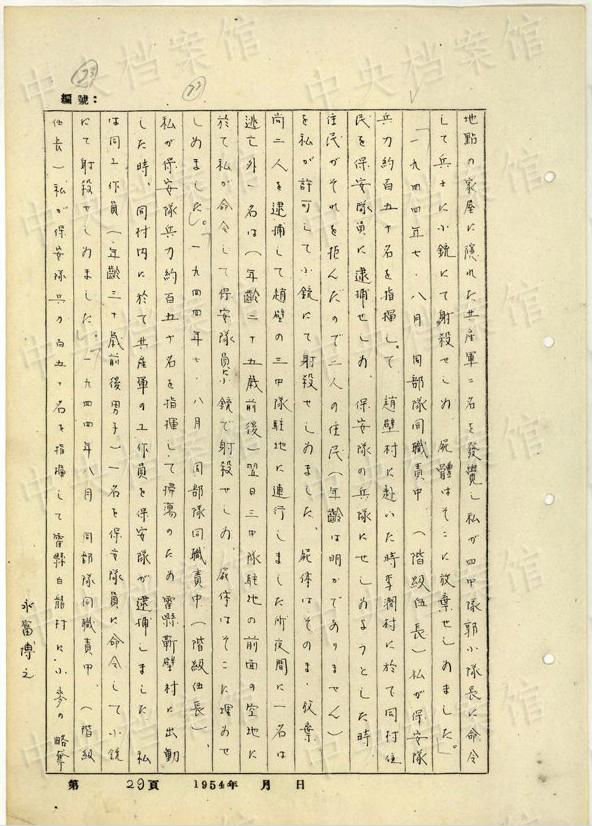 73
73
編號：
地點の家屋に隠れた共産軍二名を發覺し私が四中隊郭小隊長に命令
して兵士に小銃にて射殺せしめ 屍體はそこに放棄せしめました。
一九四四年七、八月 同部隊同職責中、(階級伍長)私が保安隊
兵力約百五十名を指揮して 趙壁村に赴いた時李潤村に於て同村住
民を保安隊員に逮捕せしめ 保安隊の兵隊にせしめようとした時
住民がそれを拒んだので二人の住民(年齢は明かでありません)
を私が許可して小銃にて射殺せしめました、屍体はそのまゝ放棄
尚二人を逮捕して趙壁の三中隊駐地に連行しました所夜間に一名は
逃亡外一名は(年齢二十五歳前後)翌日三中隊駐地の前面の空地に
於て私が命令して保安隊員に小銃で射殺せしめ 屍体はそこに埋めせ
しめました。一九四四年七、八月 同部隊同職責中(階級伍長)、
私が保安隊兵力約百五十名を指揮して掃蕩のため霍縣靳壁村に出動
した時、同村内に於て共産軍の工作員を保安隊が逮捕しました 私
は同工作員(年齢三十歳前後男子)一名を保安隊員に命令して小銃
にて射殺せしめました。一九四四年八月 同部隊同職責中、(階級
伍長)私が保安隊兵力百五十名を指揮して霍縣白龍村に小麥の略奪
永富博之
第 29頁 1954年 月 日
中央档案馆